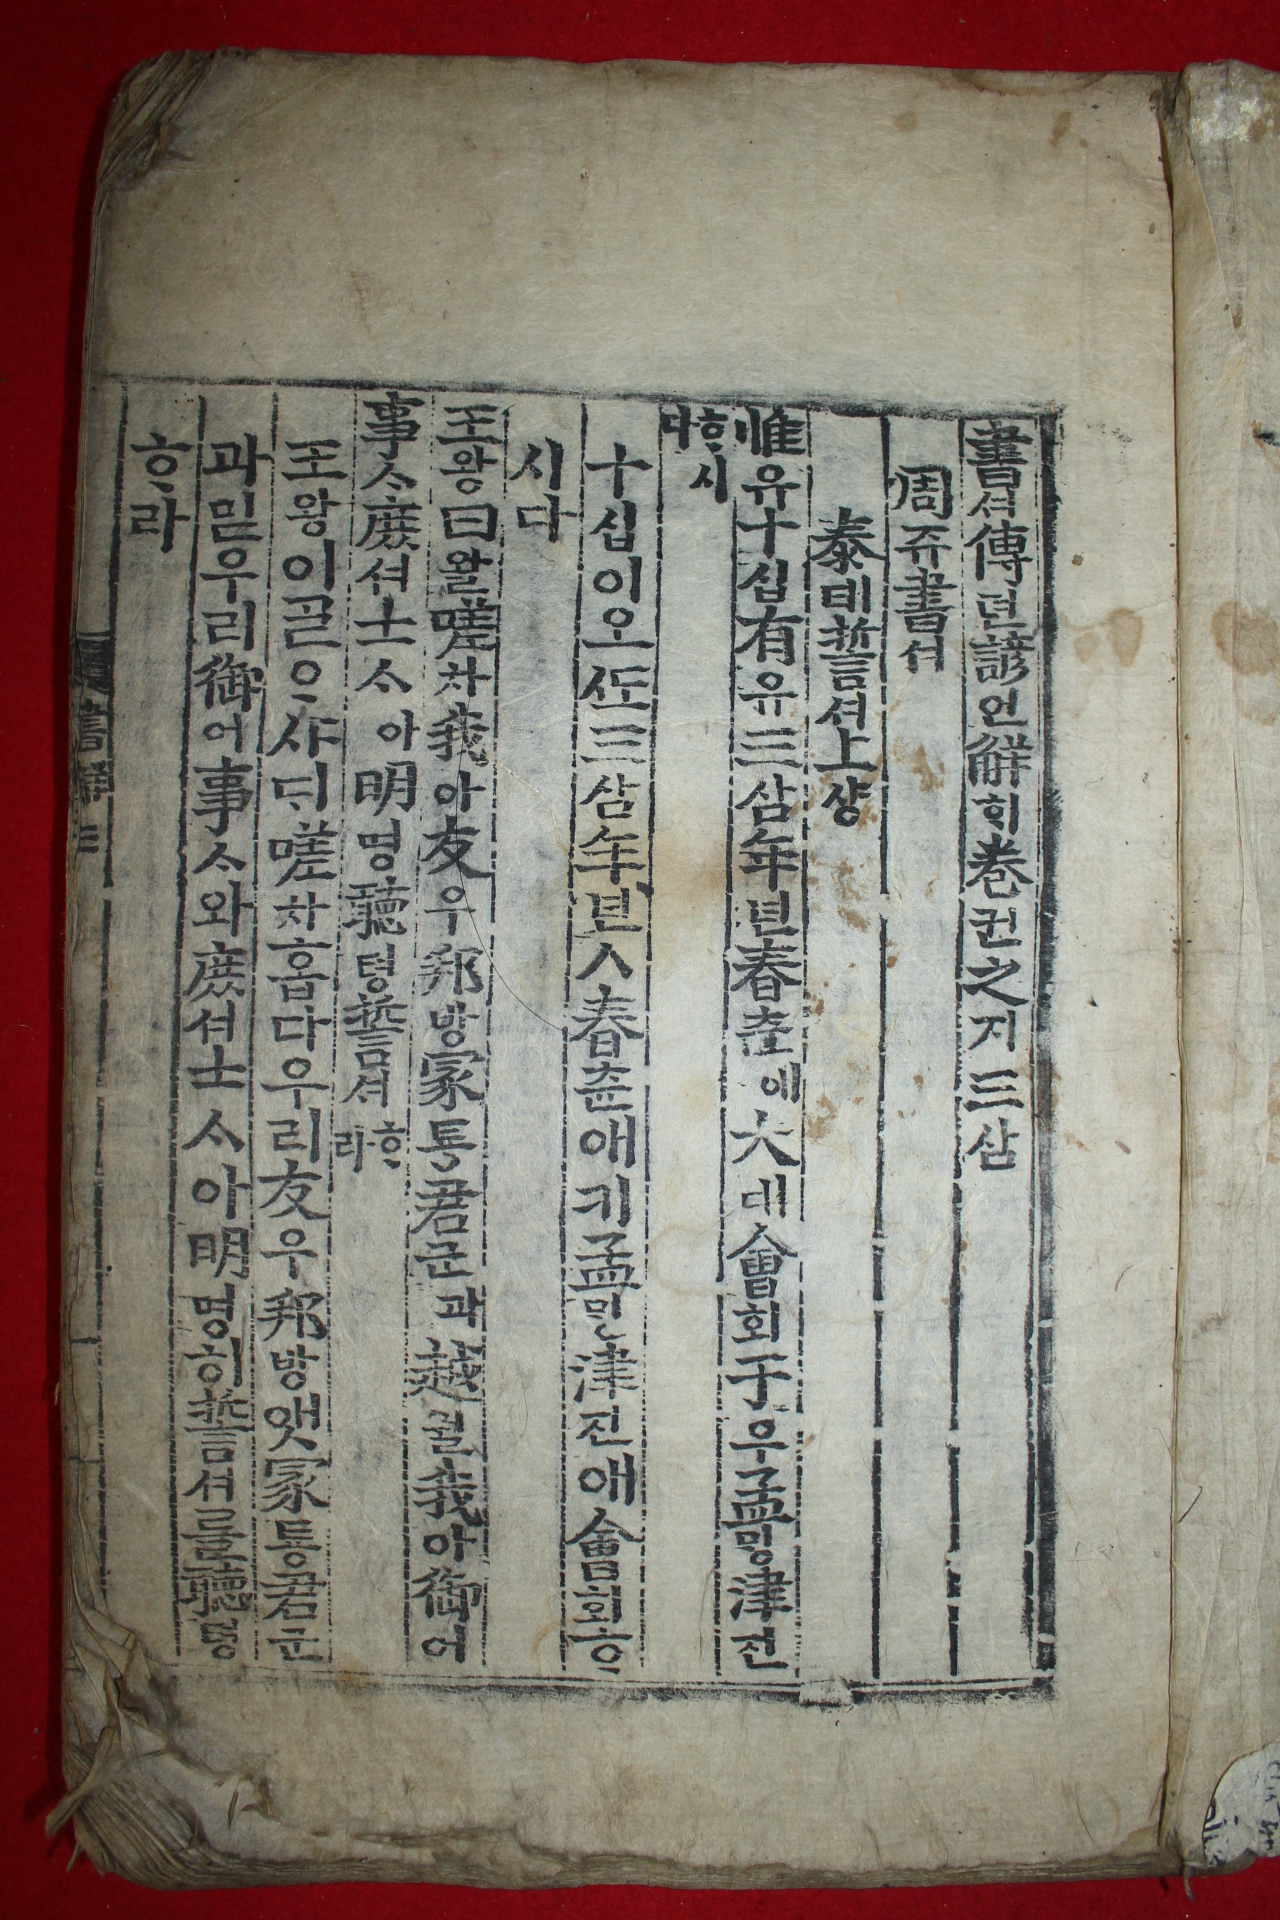 書셔傳뎐諺언解ᄒᆡ卷권之지三삼
周쥬書셔
泰태誓셔上샹
惟유十십有유三삼年년春츈에大대會회于우孟ᄆᆡᆼ津진
ᄒᆞ시다
十십이오ᄯᅩ三삼年년ㅅ春츈애키孟ᄆᆡᆼ津진애會회ᄒᆞ
시다
王왕曰왈嗟차我아友우邦방冢통君군과越월我아御어
事ᄉᆞ庶셔士ᄉᆞ아明명聽텽誓셔ᄒᆞ라
王왕이ᄀᆞᆯᄋᆞ샤ᄃᆡ嗟차홉다우리友우邦방앳冢통君군
과믿우리御어事ᄉᆞ와庶셔士ᄉᆞ아明명히誓셔를聽텽
ᄒᆞ라
書解 三